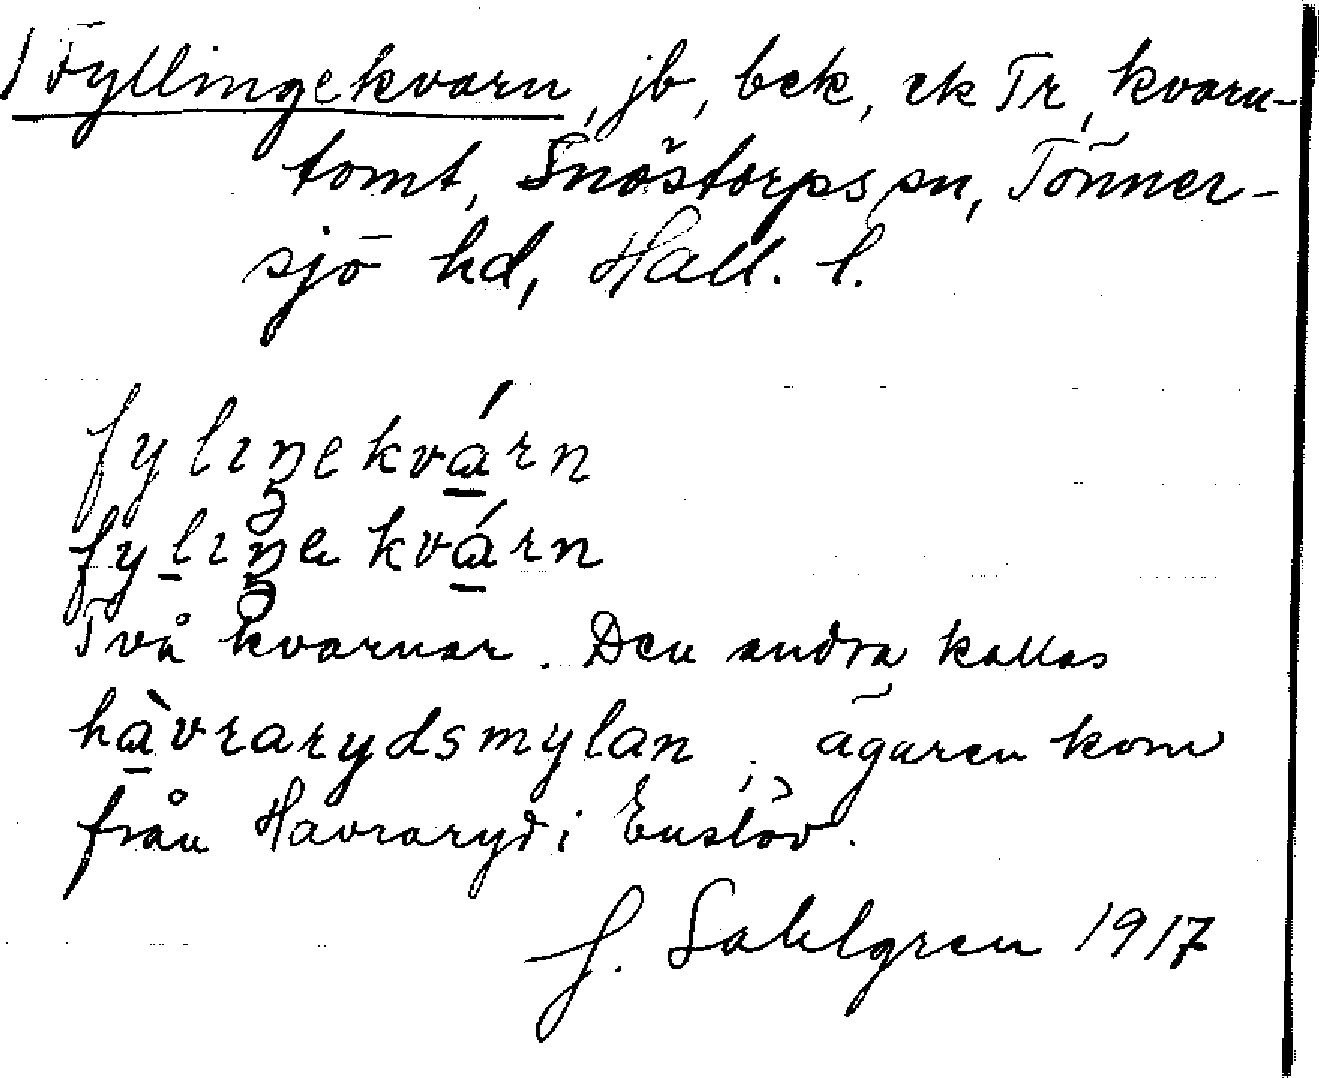 1 Fyllingekvarn, jb, bek, ek Tr, kvarn-
tomt, Snöstorps sn, Tönner-
sjö hd, Hall. l.
fylıŋekvárn
fylıŋa kvárn
Två kvarnar. Den andra kallas
hàvrarydsmylan, ägaren kom
från Havraryd i Enslöv.
J. Sahlgren 1917